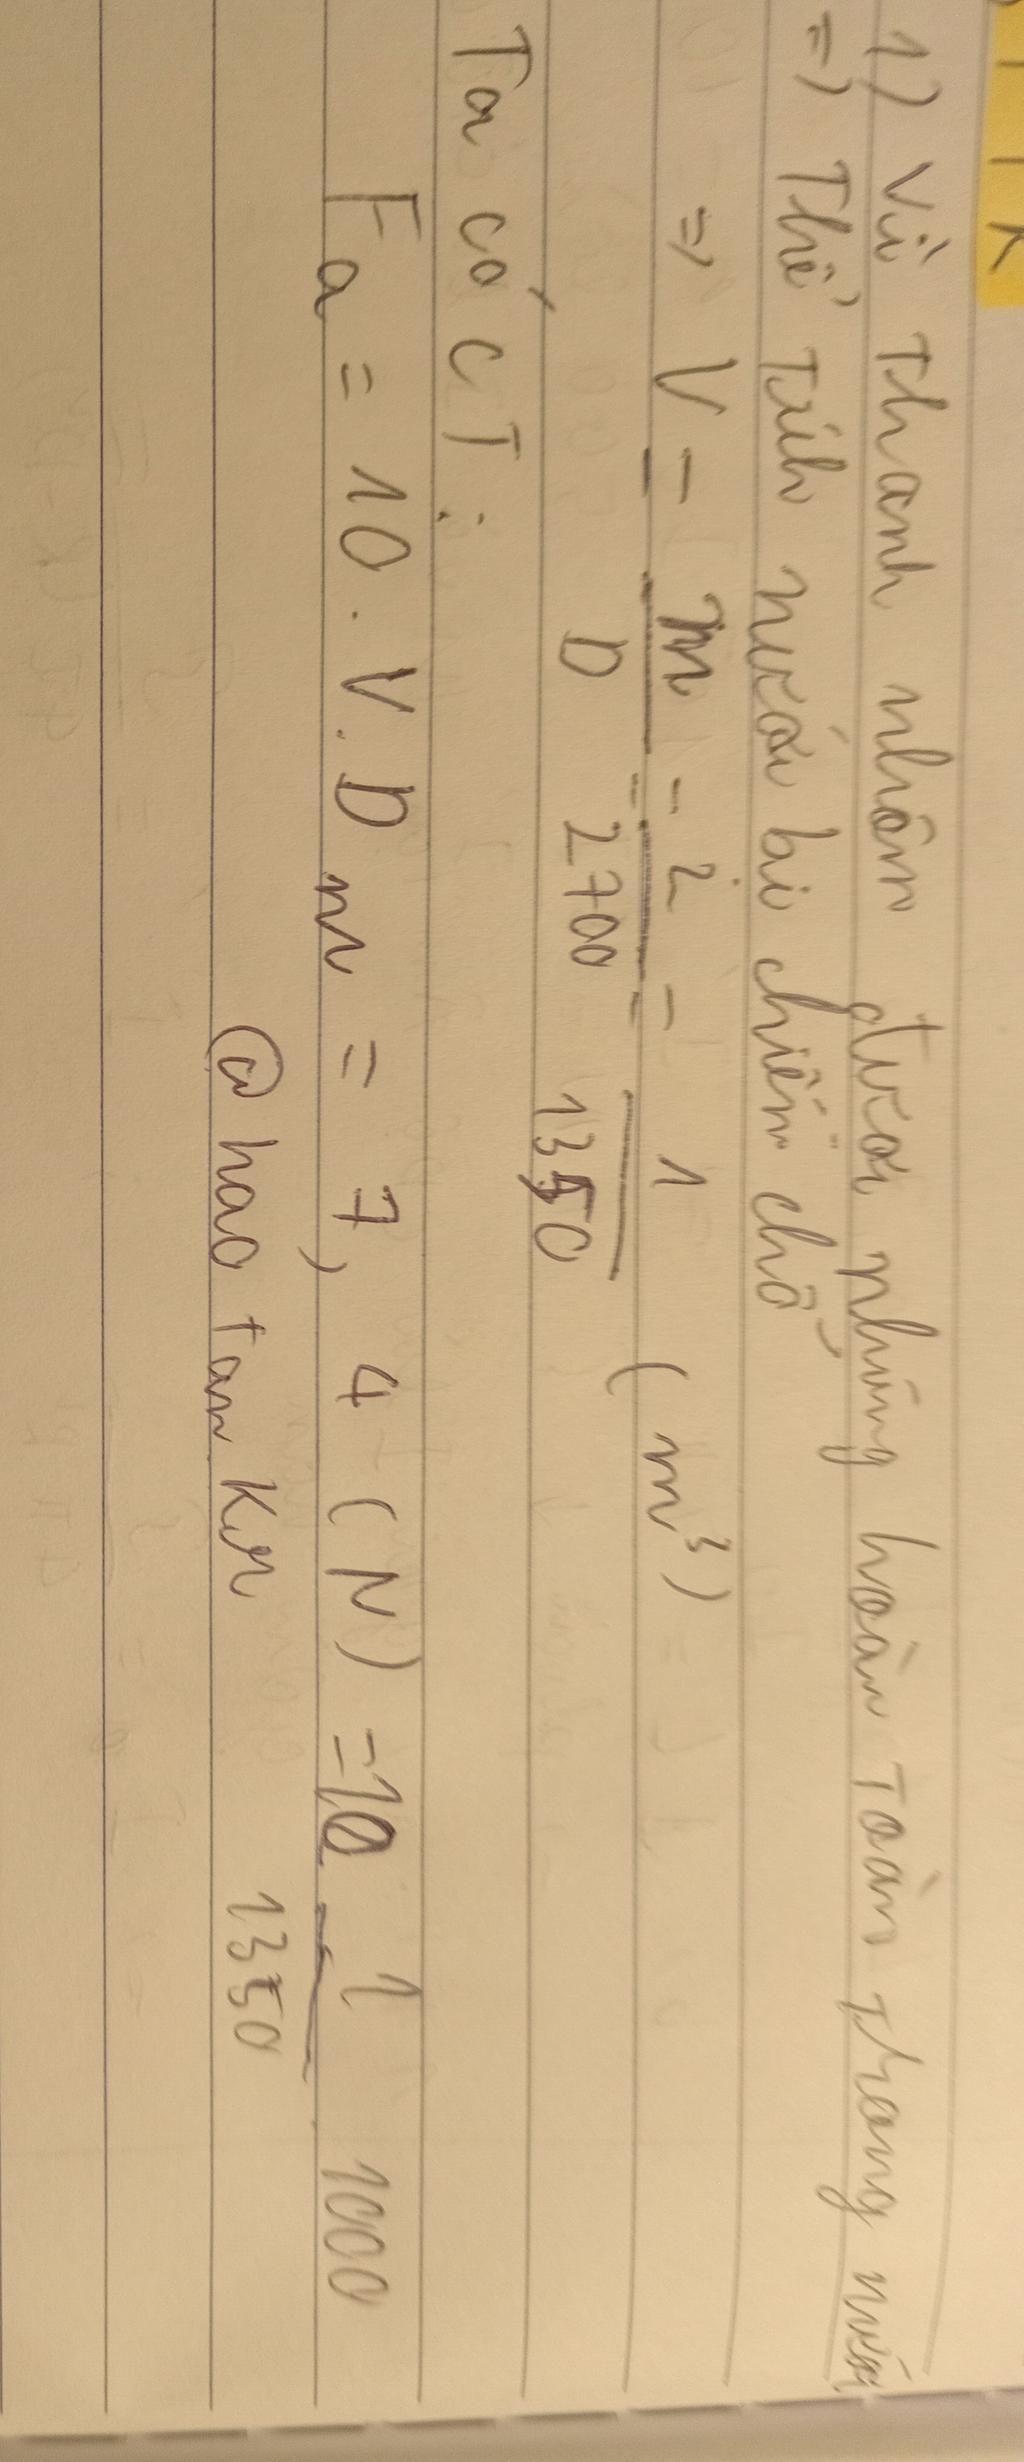 1) Vì Thanh nhôm được nhúng hoàn Toàn Trong nước
=) Thể Tích nước bị chiếm chỗ
=> V = m/D = 2/2700 = 1/1350 (m³)
Ta có CT:
Fa = 10 . V . Dn = 7,4 (N) = 10 1/1350 1000
@haotamkn